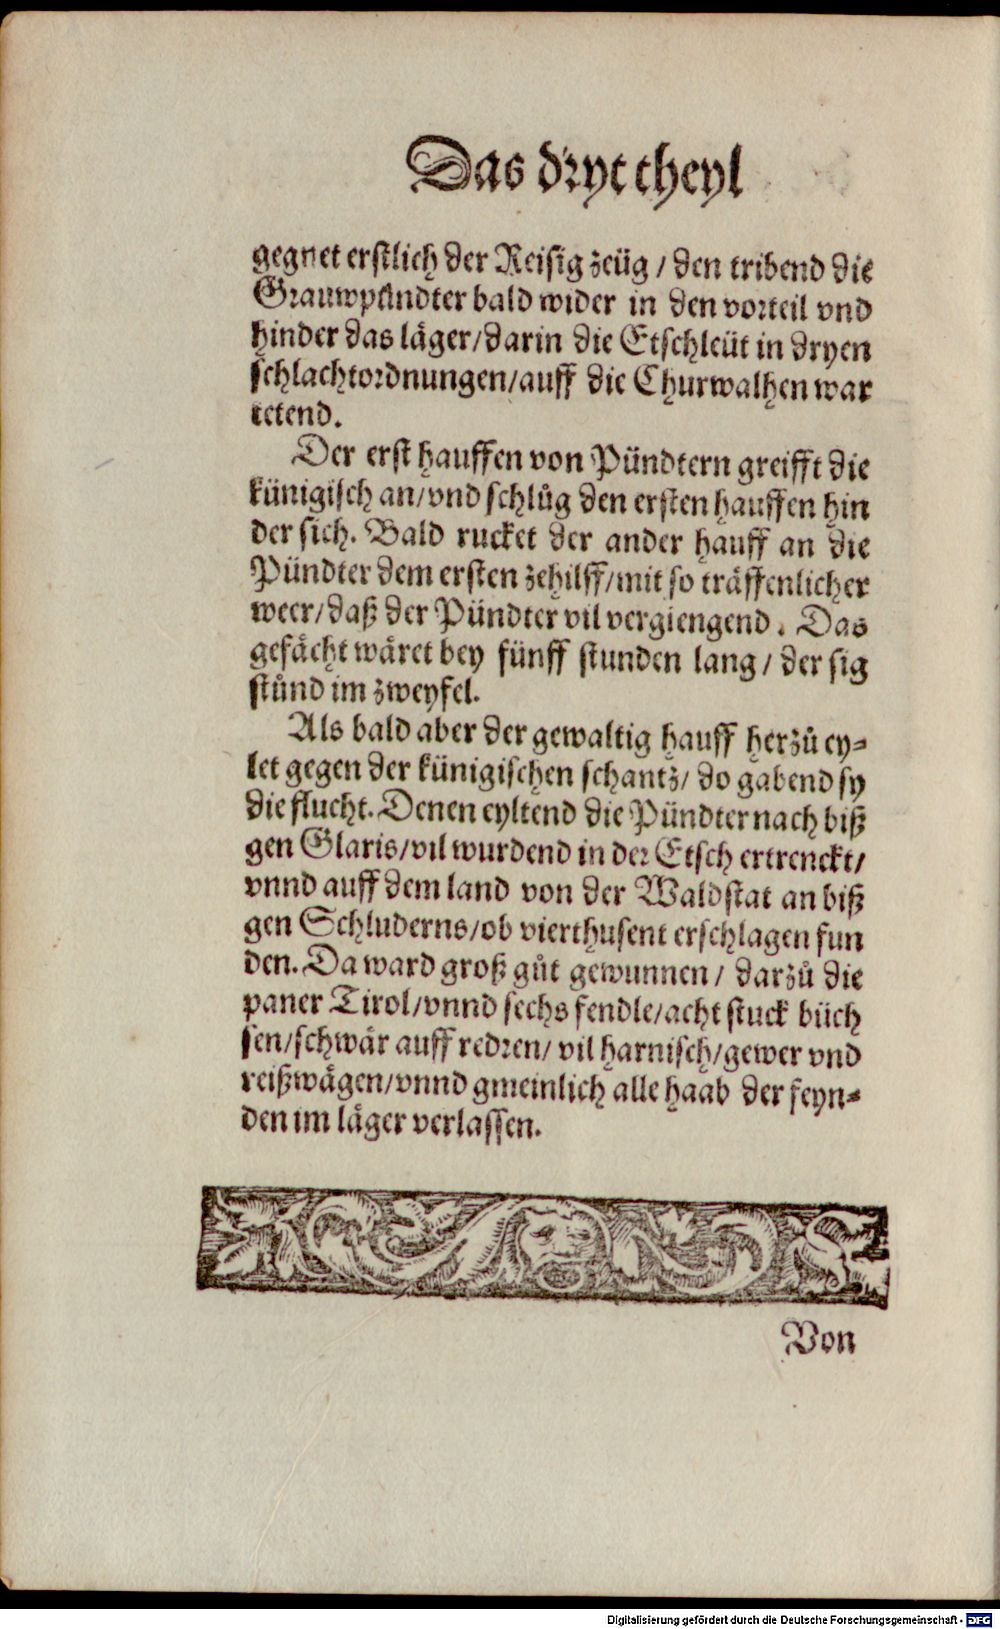 Das dryt theyl
gegnet erstlich der Reisig zeüg / den tribend die
Grauwpündter bald wider in den vorteil vnd
hinder das läger/darin die Etschleüt in dryen
schlachtordnungen/auff die Churwalhen war
tetend.
Der erst hauffen von Pündtern greifft die
künigisch an/vnd schlůg den ersten hauffen hin
der sich. Bald rucket der ander hauff an die
Pündter dem ersten zehilff/mit so träffenlicher
weer/daß der Pündter vil vergiengend. Das
gefächt wäret bey fünff stunden lang / der sig
stůnd im zweyfel.
Als bald aber der gewaltig hauff herzů ey=
let gegen der künigischen schantz/ do gabend sy
die flucht. Denen eyltend die Pündter nach biß
gen Glaris/vil wurdend in der Etsch ertrenckt/
vnnd auff dem land von der Waldstat an biß
gen Schluderns/ob vierthusent erschlagen fun
den. Da ward groß gůt gewunnen / darzů die
paner Tirol/vnnd sechs fendle/acht stuck büch
sen/schwär auff redren/ vil harnisch/gewer vnd
reißwägen/vnnd gmeinlich alle haab der feyn=
den im läger verlassen.
Von
Digitalisierung gefördert durch die Deutsche Forschungsgemeinschaft - DFG